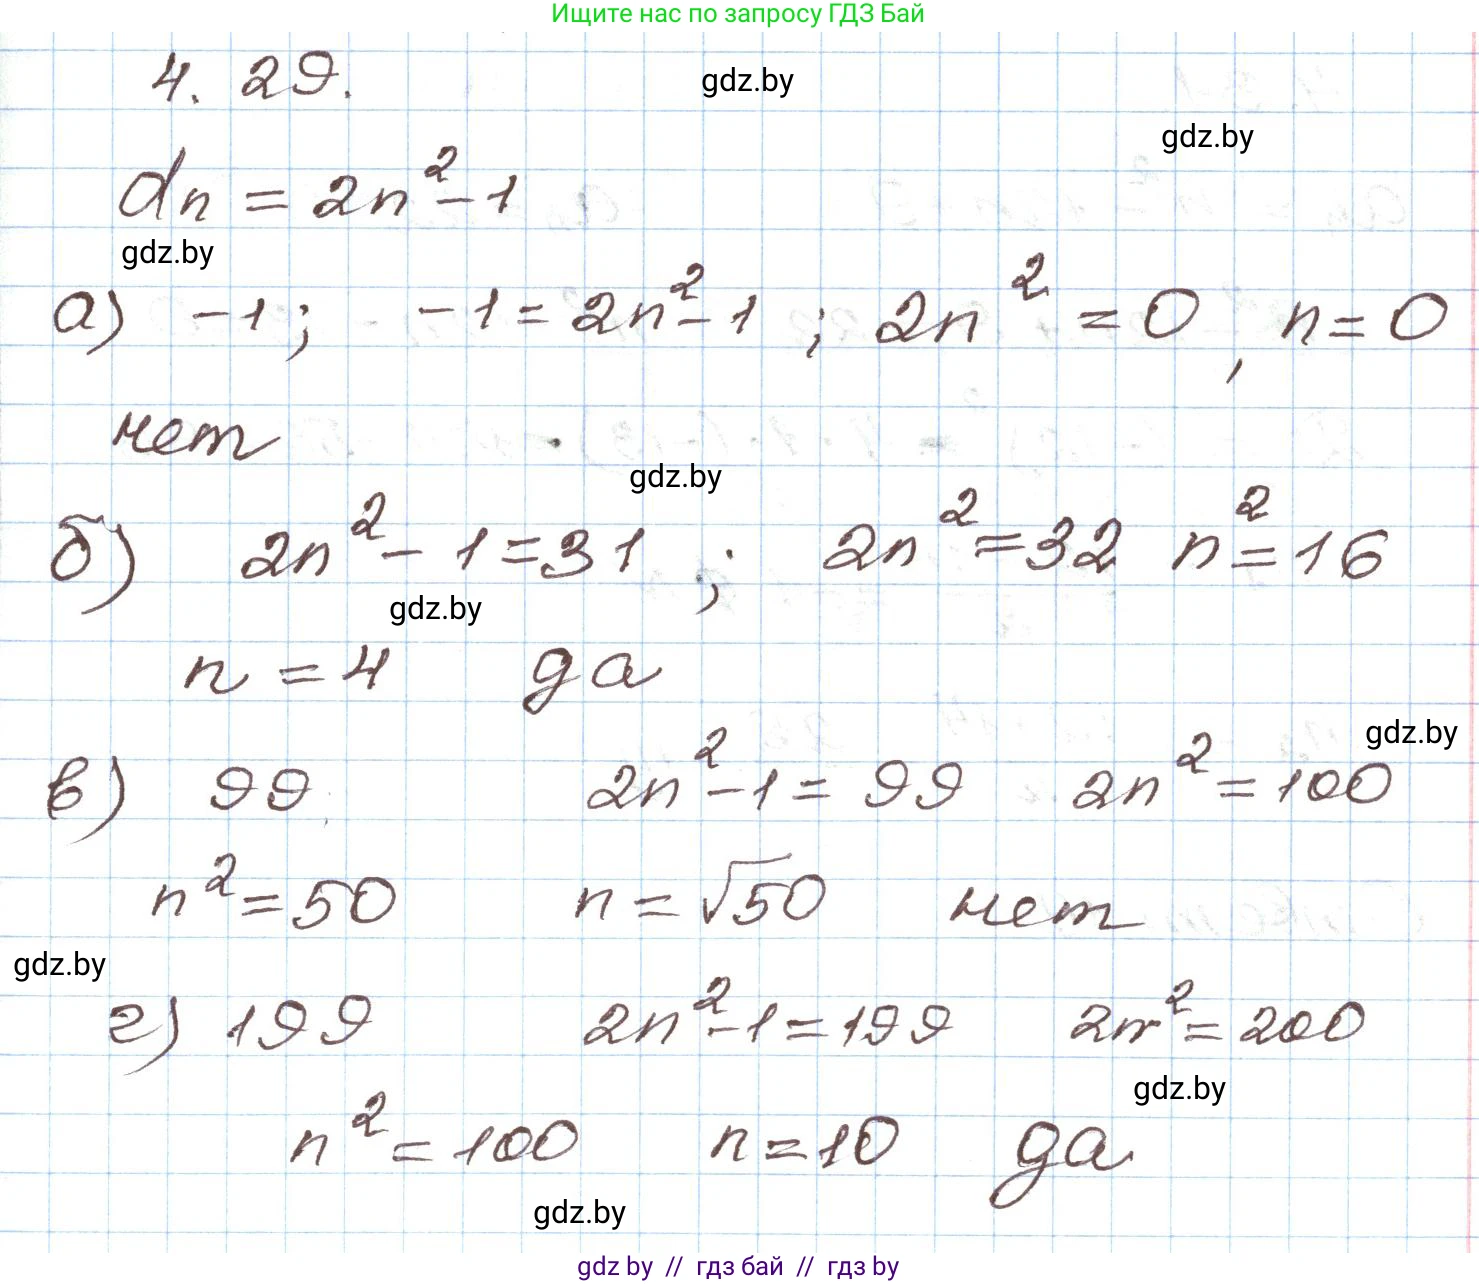 Ищите нас по запросу ГДЗ Бай
4. 29.
gdz.by
gdz.by
dn = 2n² - 1
gdz.by
а) -1; -1 = 2n² - 1 ; 2n² = 0, n = 0
нет
gdz.by
б) 2n² - 1 = 31 ; 2n² = 32 n² = 16
gdz.by
n = 4 да
gdz.by
в) 99 2n² - 1 = 99 2n² = 100
n² = 50 n = √50 нет
gdz.by
г) 199 2n² - 1 = 199 2n² = 200
gdz.by
n² = 100 n = 10 да
gdz.by
gdz by // гдз бай // gdz by